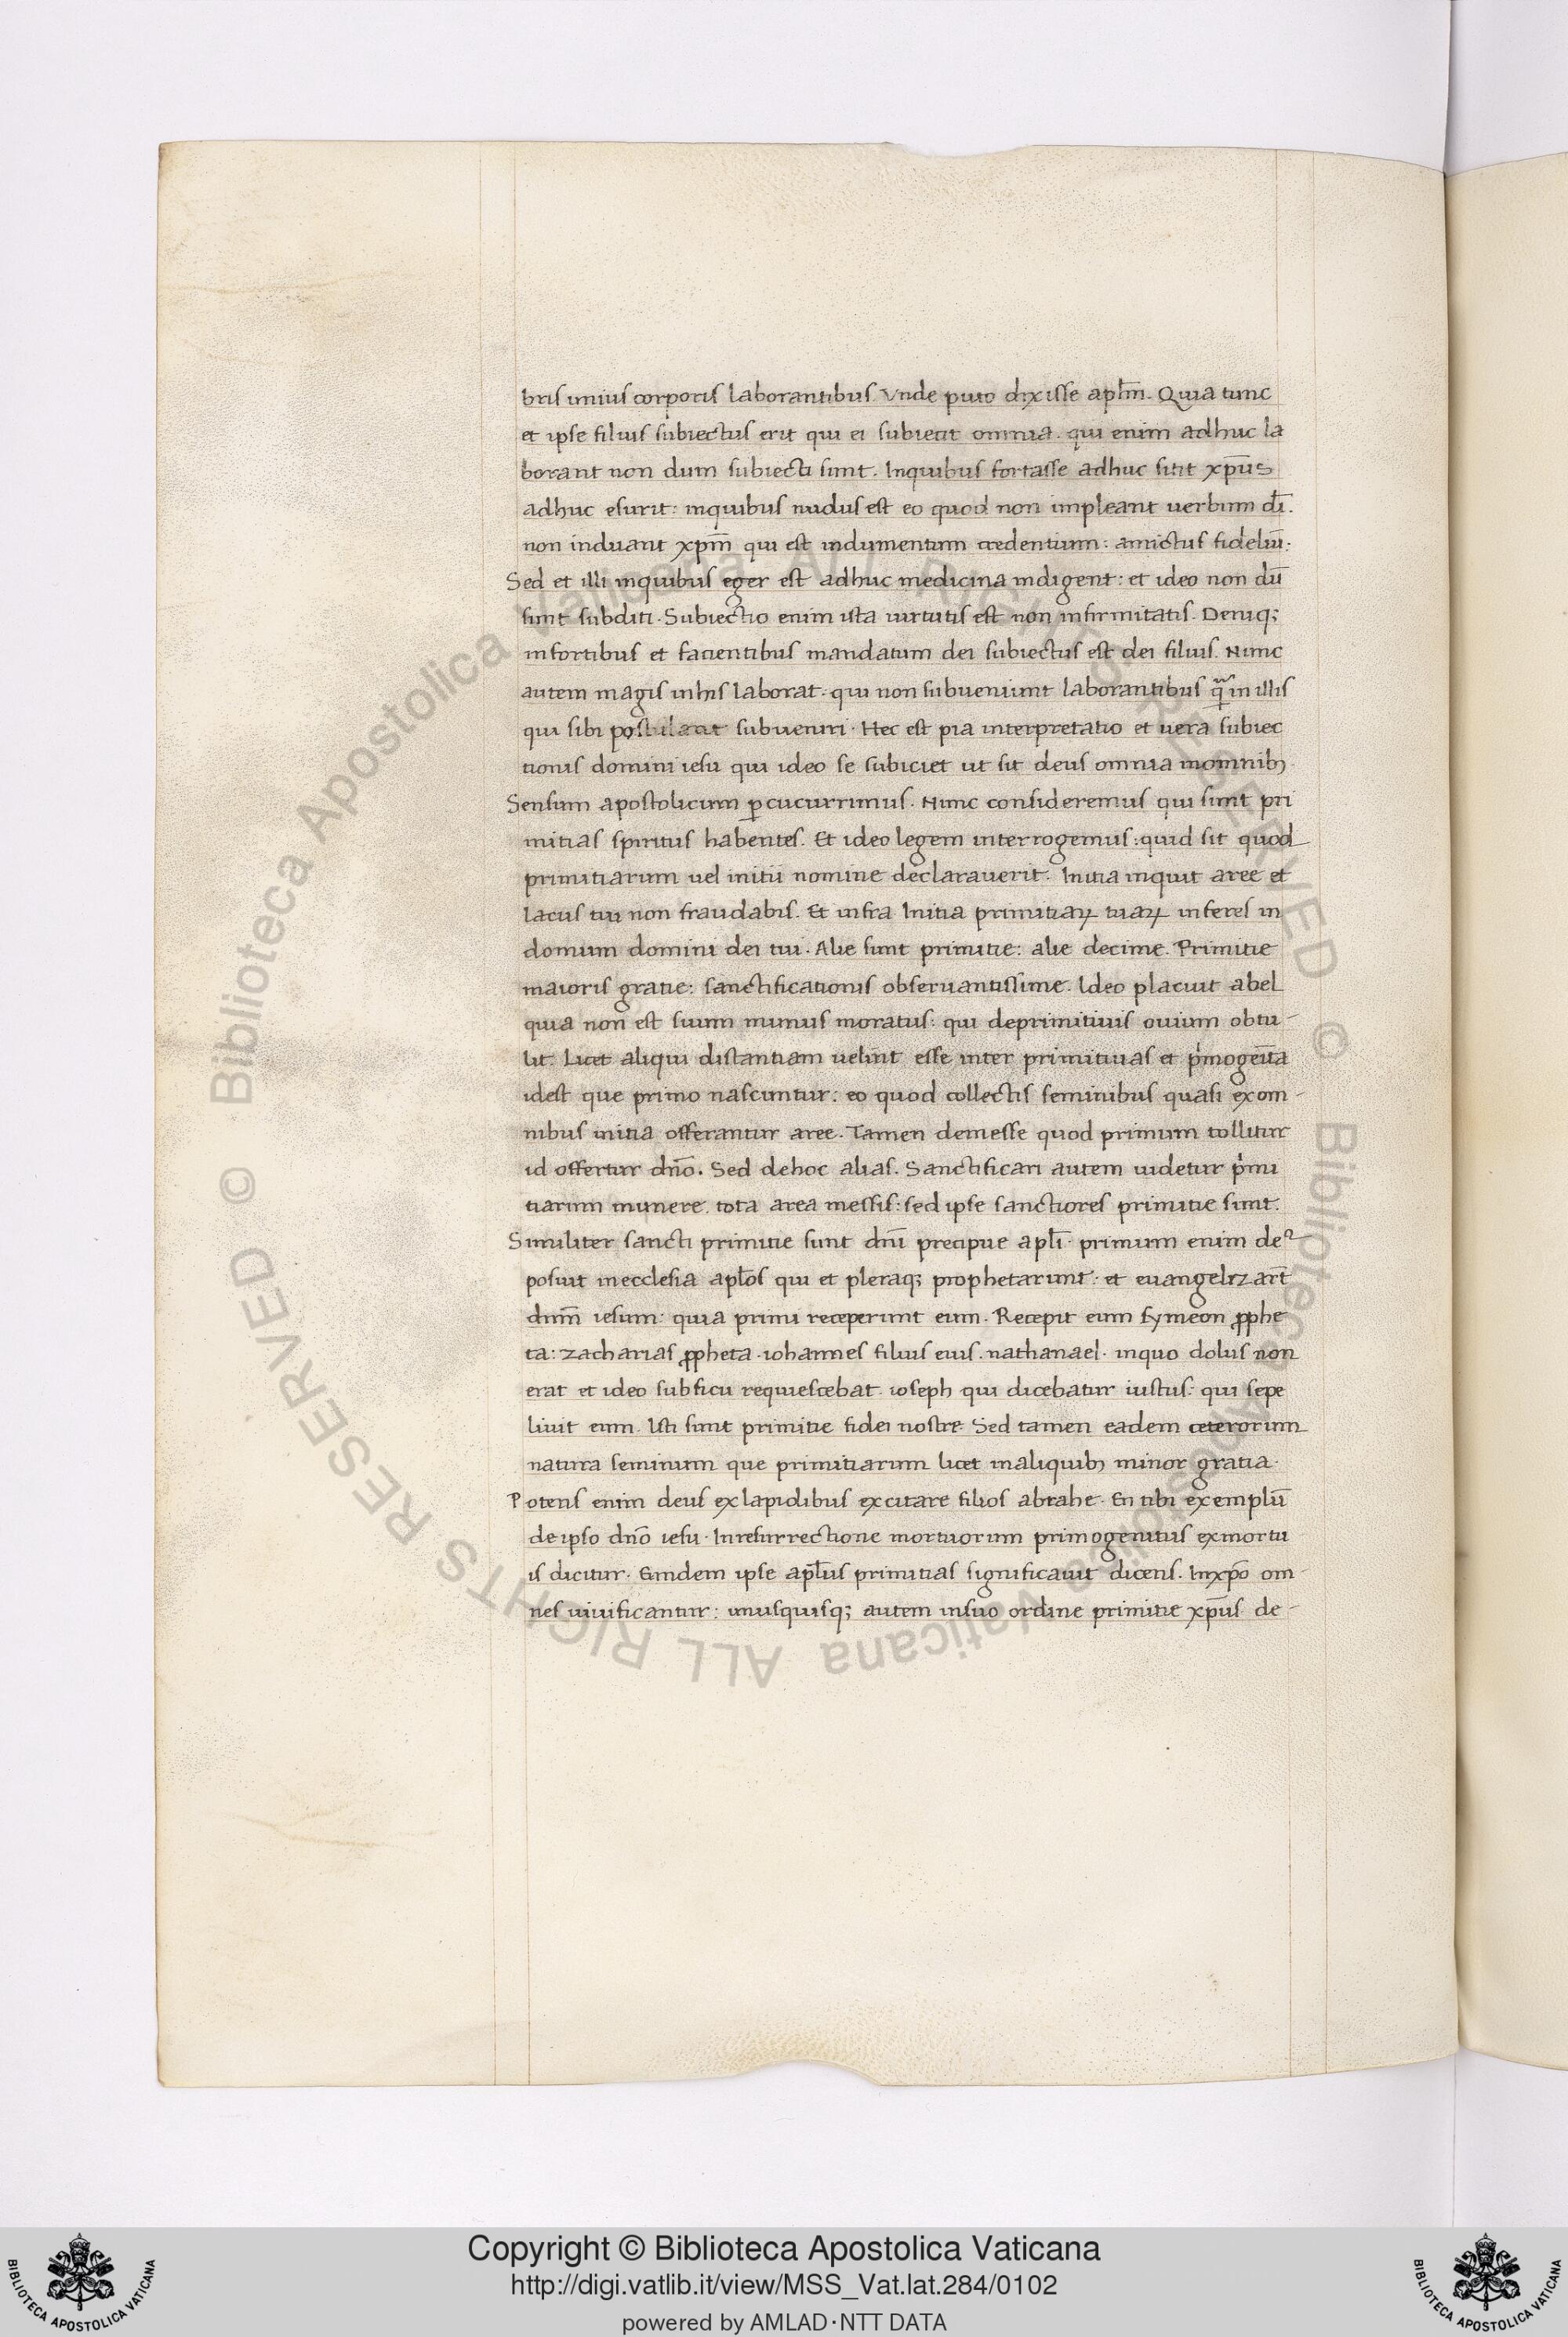 bris unius corporis laborantibus. Vnde puto dixisse apl̄m. Quia tunc
et ipse filius subiectus erit qui ei subiecit omnia. qui enim adhuc la
borant non dum subiecti sunt. Inquibus fortasse adhuc sitit xp̄us
adhuc esurit: inquibus nudus est eo quod non impleant uerbum dī.
non induant xpm̄ qui est indumentum credentium: amictus fideliū.
Sed et illi inquibus eger est adhuc medicina indigent: et ideo non dū
sunt subditi. Subiectio enim ista uirtutis est non infirmitatis. Deniq;
infortibus et facientibus mandatum dei subiectus est dei filius. Nunc
autem magis inhis laborat. qui non subueniunt laborantibus q̄ᵃ in illis
qui sibi postulant subueniri. Hec est pia interpretatio et uera subiec
tionis domini iesu qui ideo se subiciet ut sit deus omnia inomnibꝫ
Sensum apostolicum ꝑcucurrimus. Nunc consideremus qui sunt pri
mitias spiritus habentes. Et ideo legem interrogemus: quid sit quod
primitiarum uel initii nomine declarauerit. Initia inquit aree et
lacus tui non fraudabis. Et infra Initia primitiaꝝ tuaꝝ inferes in
domum domini dei tui. Alie sunt primitie: alie decime. Primitie
maioris gratie: sanctificationis obseruantissime. Ideo placuit abel
quia non est suum munus moratus: qui deprimitiuis ouium obtu-
lit. Licet aliqui distantiam uelint esse inter primitiuas et pͥmogenīta
idest que primo nascuntur: eo quod collectis seminibus quasi exom-
nibus initia offerantur aree. Tamen demesse quod primum tollitur
id offertur dn̄o. Sed dehoc alias. Sanctificari autem uidetur pͥmi
tiarum munere. tota area messis: sed ipse sanctiores primitie sunt.
Similiter sancti primitie sunt dn̄i precipue apl̄i. primum enim de²
posuit inecclesia apl̄os qui et pleraq; prophetarunt: et euangelizar̄t
dn̄m iesum: quia primi receperunt eum. Recepit eum symeon ꝓphe
ta: zacharias ꝓpheta. iohannes filius eius. nathanael. inquo dolus non
erat et ideo subficu requiescebat. ioseph qui dicebatur iustus: qui sepe
liuit eum. Isti sunt primitie fidei nostre. Sed tamen eadem ceterorum
natura seminum que primitiarum licet inaliquibꝫ minor gratia.
Potens enim deus exlapidibus excitare filios abrahe. En tibi exemplū
de ipso dn̄o iesu. Inresurrectione mortuorum primogenitus exmortu
is dicitur. Eundem ipse apl̄us primitias significauit dicens. Inxp̄o om-
nes uiuificantur: unusquisq; autem insuo ordine primitie xp̄us de-
Copyright © Biblioteca Apostolica Vaticana
http://digi.vatlib.it/view/MSS_Vat.lat.284/0102
powered by AMLAD·NTT DATA
© Biblioteca Apostolica Vaticana ALL RIGHTS RESERVED
© Biblioteca Apostolica Vaticana ALL RIGHTS RESERVED
BIBLIOTECA APOSTOLICA VATICANA
BIBLIOTECA APOSTOLICA VATICANA